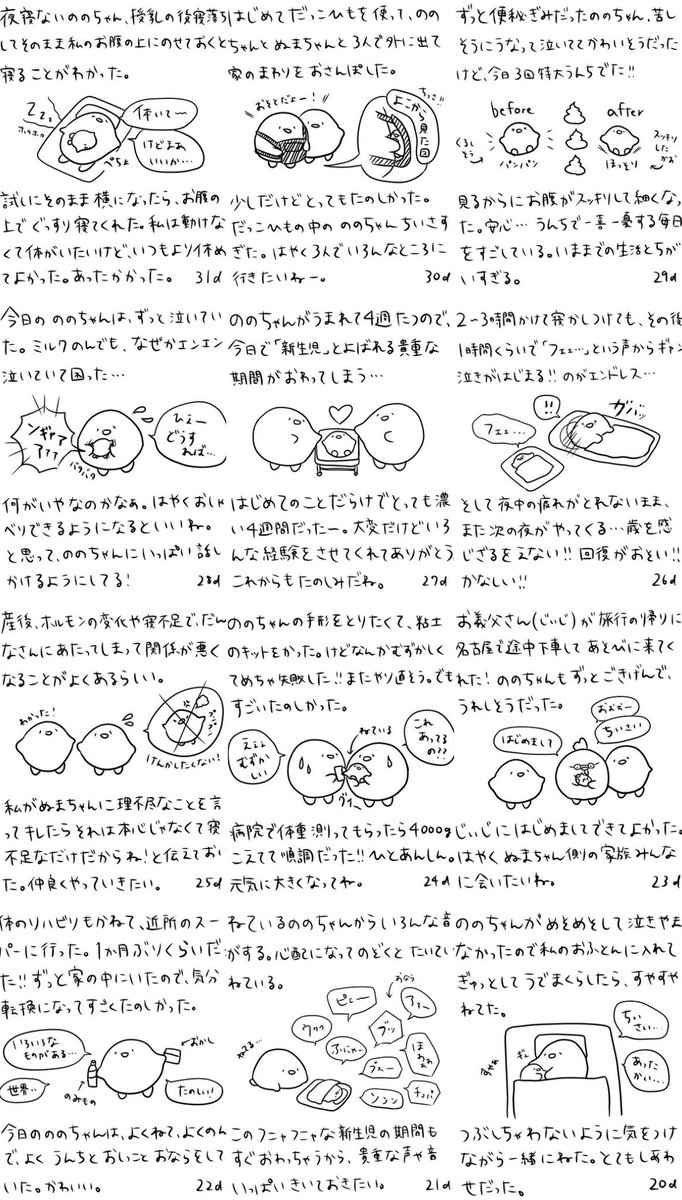 夜寝ないののちゃん、授乳の後寝落ち
してそのまま私のお腹の上にのせておくと
寝ることがわかった。
Zzz
ホッカホッカ
体いて〜
けどまぁいいか…
ぺちょ
試しにそのまま横になったら、お腹の
上でぐっすり寝てくれた。私は動けな
くて体がいたいけど、いつもより休め
てよかった。あったかかった。 31d
はじめてだっこひもを使って、のの
ちゃんとぬまちゃんと3人で外に出て
家のまわりをおさんぽした。
おそとだよー!
ちっさ!!
よこから見た図
少しだけどとってもたのしかった。
だっこひもの中の ののちゃん ちいさす
ぎた。はやく3人でいろんなところに
行きたいねー。 30d
ずっと便秘ぎみだったののちゃん、苦し
そうにうなって泣いててかわいそうだった
けど、今日3回特大うんちでた!!
before
after
くるしそう
パンパン
ほっそり
スッキリしたかお
見るからにお腹がスッキリして細くなっ
た。安心… うんちで一喜一憂する毎日
をすごしている。いままでの生活とちが
いすぎる。 29d
今日の ののちゃんは、ずっと泣いてい
た。ミルクのんでも、なぜかエンエン
泣いていて困った…
ンギャアアァァ
バタバタ
ひえーどうすれば…
何がいやなのかなぁ。はやくおしゃ
べりできるようになるといいね。
と思って、ののちゃんにいっぱい話し
かけるようにしてる! 28d
ののちゃんがうまれて4週たつので、
今日で「新生児」とよばれる貴重な
期間がおわってしまう…
はじめてのことだらけでとっても濃
い4週間だったー。大変だけどいろ
んな経験をさせてくれてありがとう
これからもたのしみだね。 27d
2〜3時間かけて寝かしつけても、その後
1時間くらいで「フェェ…」という声からギャン
泣きがはじまる!!のがエンドレス…
フェェ…
!!
ガバッ
そして夜中の疲れがとれないまま、
また次の夜がやってくる…歳を感
じざるをえない!!回復がおそい!!
かなしい!! 26d
産後、ホルモンの変化や寝不足で、だん
なさんにあたってしまって関係が悪く
なることがよくあるらしい。
わかった!
プンプン
けんかしたくない!
私がぬまちゃんに理不尽なことを言
ってキレたらそれは本心じゃなくて寝
不足なだけだからね!と伝えておい
た。仲良くやっていきたい。 25d
ののちゃんの手形をとりたくて、粘土
のキットをかった。けどなんかむずかしく
てめちゃ失敗した!!またやり直そう。でも
すごいたのしかった。
ええぇむずかしい
ねている
これあってるの??
グイー
病院で体重測ってもらったら4000g
こえてて順調だった!!ひとあんしん。
元気に大きくなってね。 24d
お義父さん(じぃじ)が旅行の帰りに
名古屋で途中下車してあそびに来て
くれた!ののちゃんもずっとごきげんで、
うれしそうだった。
はじめまして
おぉぉー
ちいさい
じぃじにはじめましてできてよかった。
はやくぬまちゃん側の家族みんな
に会いたいね。 23d
体のリハビリもかねて、近所のスー
パーに行った。1か月ぶりくらいだ
た!!ずっと家の中にいたので、気分
転換になってすごくたのしかった。
いろいろなものがある…
おかし
世界…
のみもの
たのしい!
今日のののちゃんは、よくねて、よくのん
で、よく うんちとおしっことおならをして
いた。かわいい。 22d
ねているののちゃんからいろんな音
がする。心配になってのぞくと たいてい
ねている。
ねてる…
ピェー
おなら
アァー
ウククク
ブッ
ふにゃー
ほわぁぁ
ブェー
ソフソフ
チュパ
このフニャフニャな新生児の期間も
すぐおわっちゃうから、貴重な声や音
いっぱいきいておきたい。 21d
ののちゃんがめそめそして泣きやま
なかったので私のおふとんに入れて
ぎゅっとしてうでまくらしたら、すやすや
ねてた。
すやぁ
ギュ
ちぃさい…
あったかい…
つぶしちゃわないように気をつけ
ながら一緒にねた。とてもしあわ
せだった。 20d